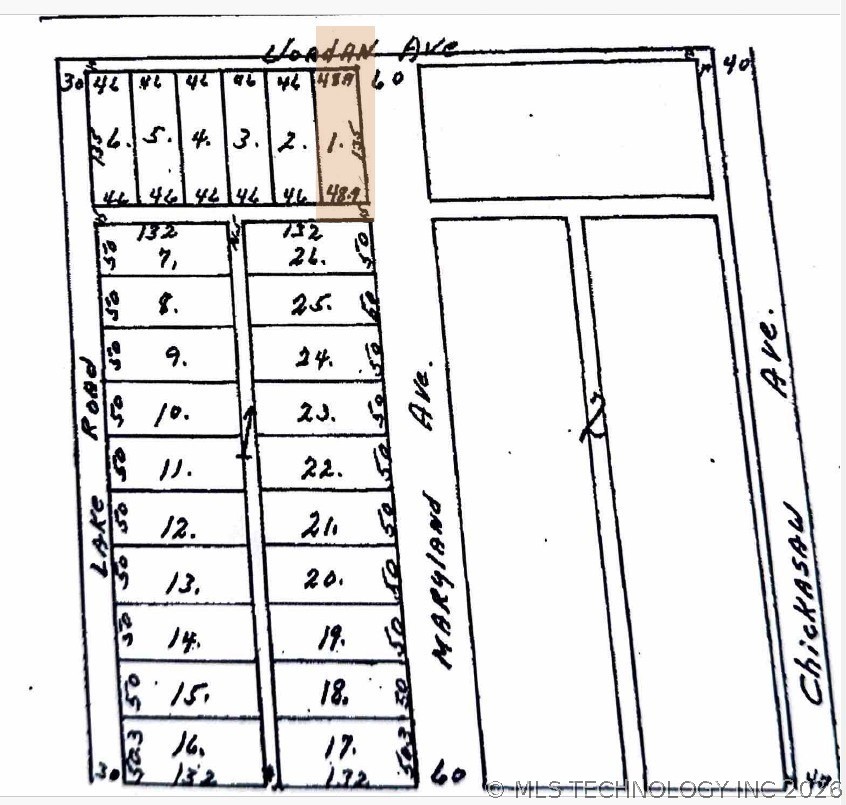 JORDAN AVE
30 46 46 46 46 46 48.9 60 40
135 6. 5. 4. 3. 2. 1. 135
46 46 46 46 46 48.9
132 15 132
50 7. 26. 50
50 8. 25. 50
50 9. 24. 50
50 10. 23. 50
1
2
50 11. 22. 50
50 12. 21. 50
50 13. 20. 50
50 14. 19. 50
50 15. 18. 50
50.3 16. 17. 50.3
30 132 132 60
LAKE ROAD
MARYLAND AVE.
CHICKASAW AVE.
© MLS TECHNOLOGY INC 2026